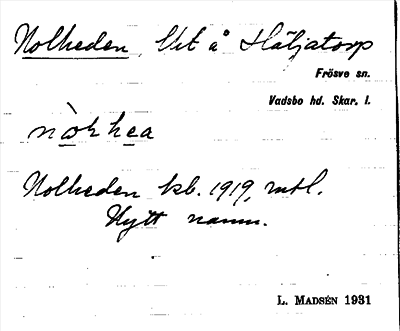 Nolheden, Utj å Häljatorp
Frösve sn.
Vadsbo hd. Skar. l.
nòłhea
Nolheden kb. 1919, mtl.
Nytt namn.
L. MADSÉN 1931